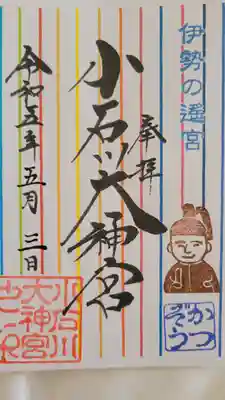 伊勢の遥宮
奉拝
小石川大神宮
令和五年五月三日
小石川
大神宮
かつ
ぞう